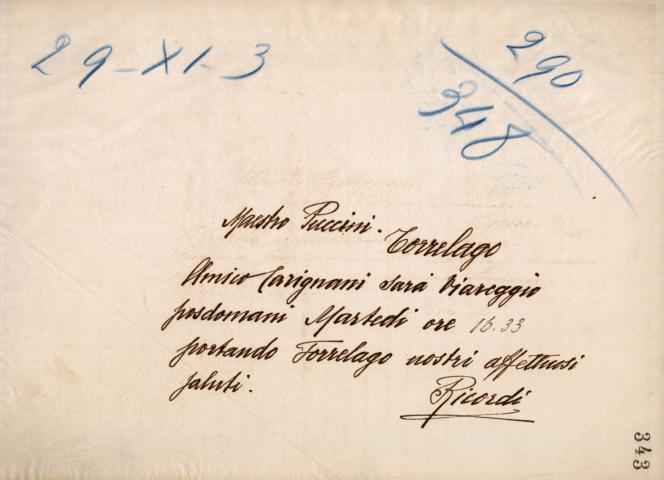 29-XI-3
290
348
Maestro Puccini.
Torrelago
Amico Carignani sarà Viareggio
posdomani Martedì ore 16.33
portando Torrelago nostri affettuosi
saluti.
Ricordi
343